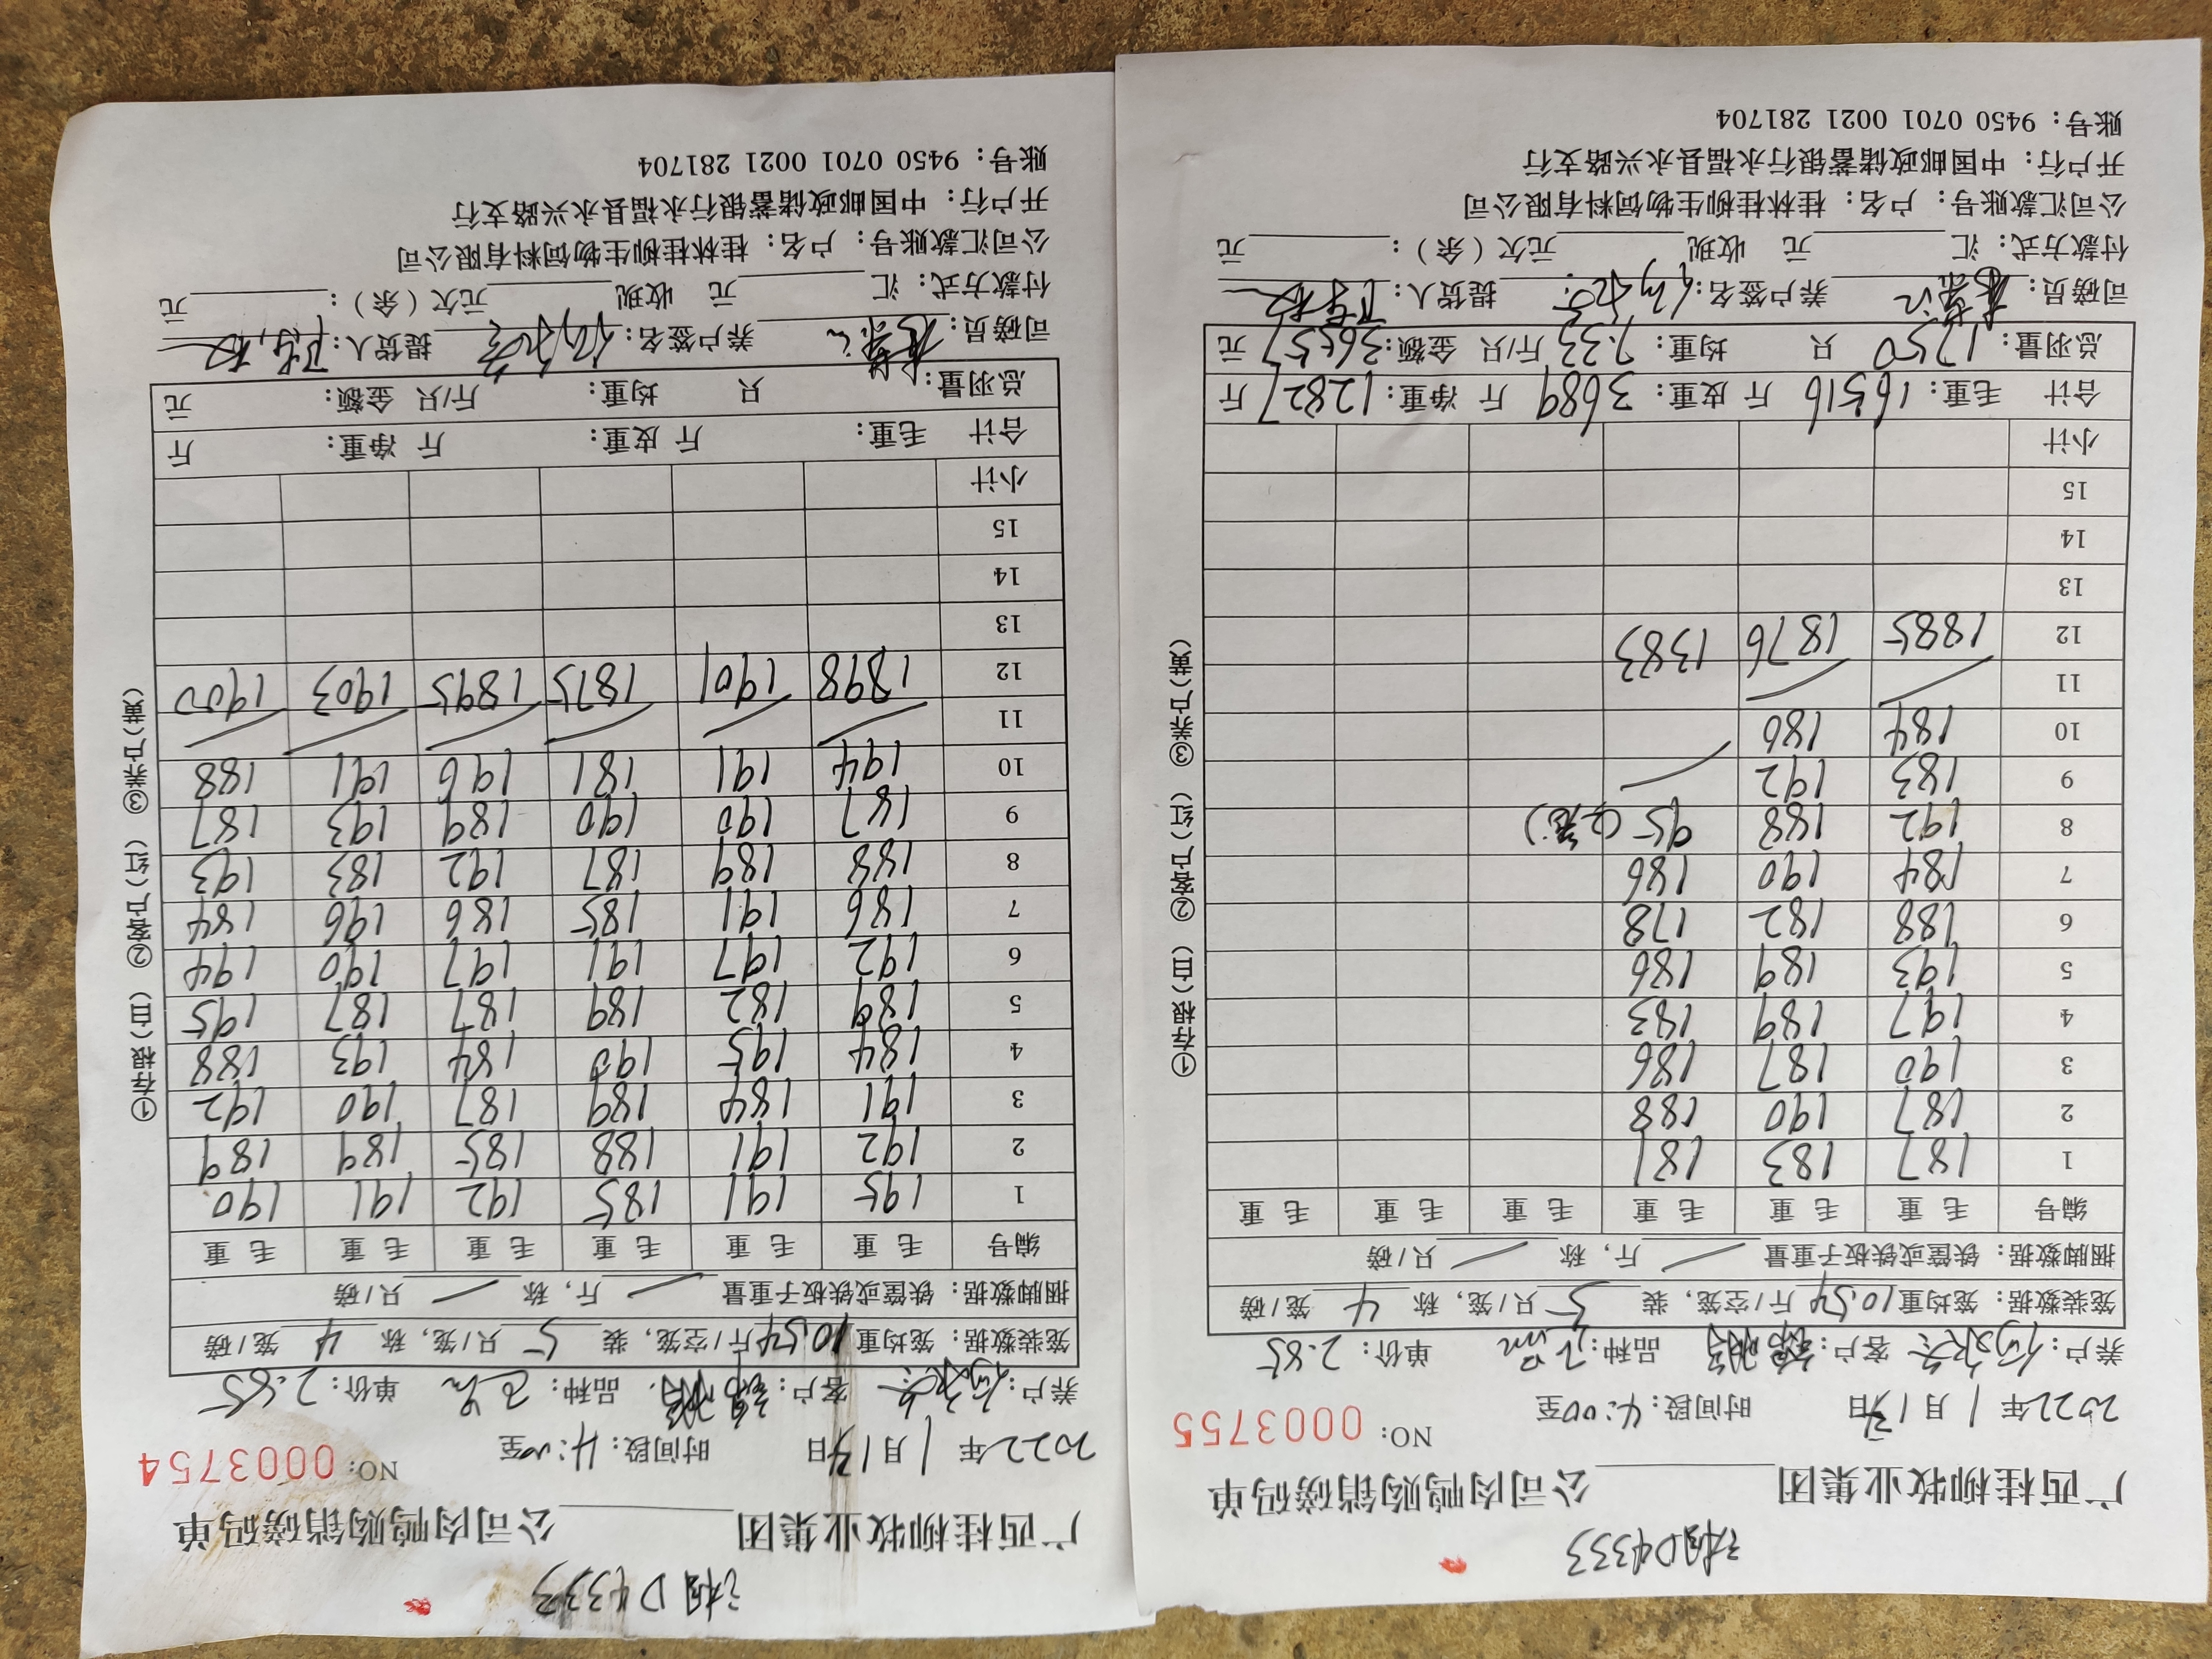 湘D4333
广西桂柳牧业集团______公司肉鸭购销磅码单
2022年1月13日 时间段:4:00至 NO: 0003755
养户: 客户: 品种: 单价:2.85
笼装数据:笼均重10.54斤/空笼,装 5 只/笼,称 4 笼/磅
捆脚数据:铁筐或铁板子重量 / 斤,称 / 只/磅
编号 毛重 毛重 毛重 毛重 毛重 毛重
1 187 183 181
2 187 190 188
3 190 187 186
4 197 189 183
5 193 189 186
6 188 182 178
7 184 190 186
8 192 188 95(2笼)
9 183 192 /
10 184 186
11 / /
12 1885 1876 1383
13
14
15
小计
合计 毛重:16516斤 皮重:3689斤 净重:12827斤
总羽量:1750只 均重:7.33斤/只 金额:36557元
司磅员: 养户签名: 提货人:
付款方式:汇______元 收现______元欠(余):______元
公司汇款账号:户名:桂林桂柳生物饲料有限公司
开户行:中国邮政储蓄银行永福县永兴路支行
账号:9450 0701 0021 281704
①存根(白) ②客户(红) ③养户(黄)
湘D4333
广西桂柳牧业集团______公司肉鸭购销磅码单
2022年1月13日 时间段:4:00至 NO: 0003754
养户: 客户: 品种: 单价:2.85
笼装数据:笼均重10.54斤/空笼,装 5 只/笼,称 4 笼/磅
捆脚数据:铁筐或铁板子重量 / 斤,称 / 只/磅
编号 毛重 毛重 毛重 毛重 毛重 毛重
1 195 191 185 192 191 190
2 192 191 188 185 189 189
3 191 184 189 187 190 192
4 184 195 190 184 193 188
5 189 182 189 187 187 195
6 192 197 191 197 190 194
7 186 191 185 186 196 184
8 188 189 187 192 183 193
9 187 190 190 189 193 187
10 194 191 181 196 191 188
11 / / / / / /
12 1898 1901 1875 1895 1903 1900
13
14
15
小计
合计 毛重: 斤 皮重: 斤 净重: 斤
总羽量: 只 均重: 斤/只 金额: 元
司磅员: 养户签名: 提货人:
付款方式:汇______元 收现______元欠(余):______元
公司汇款账号:户名:桂林桂柳生物饲料有限公司
开户行:中国邮政储蓄银行永福县永兴路支行
账号:9450 0701 0021 281704
①存根(白) ②客户(红) ③养户(黄)